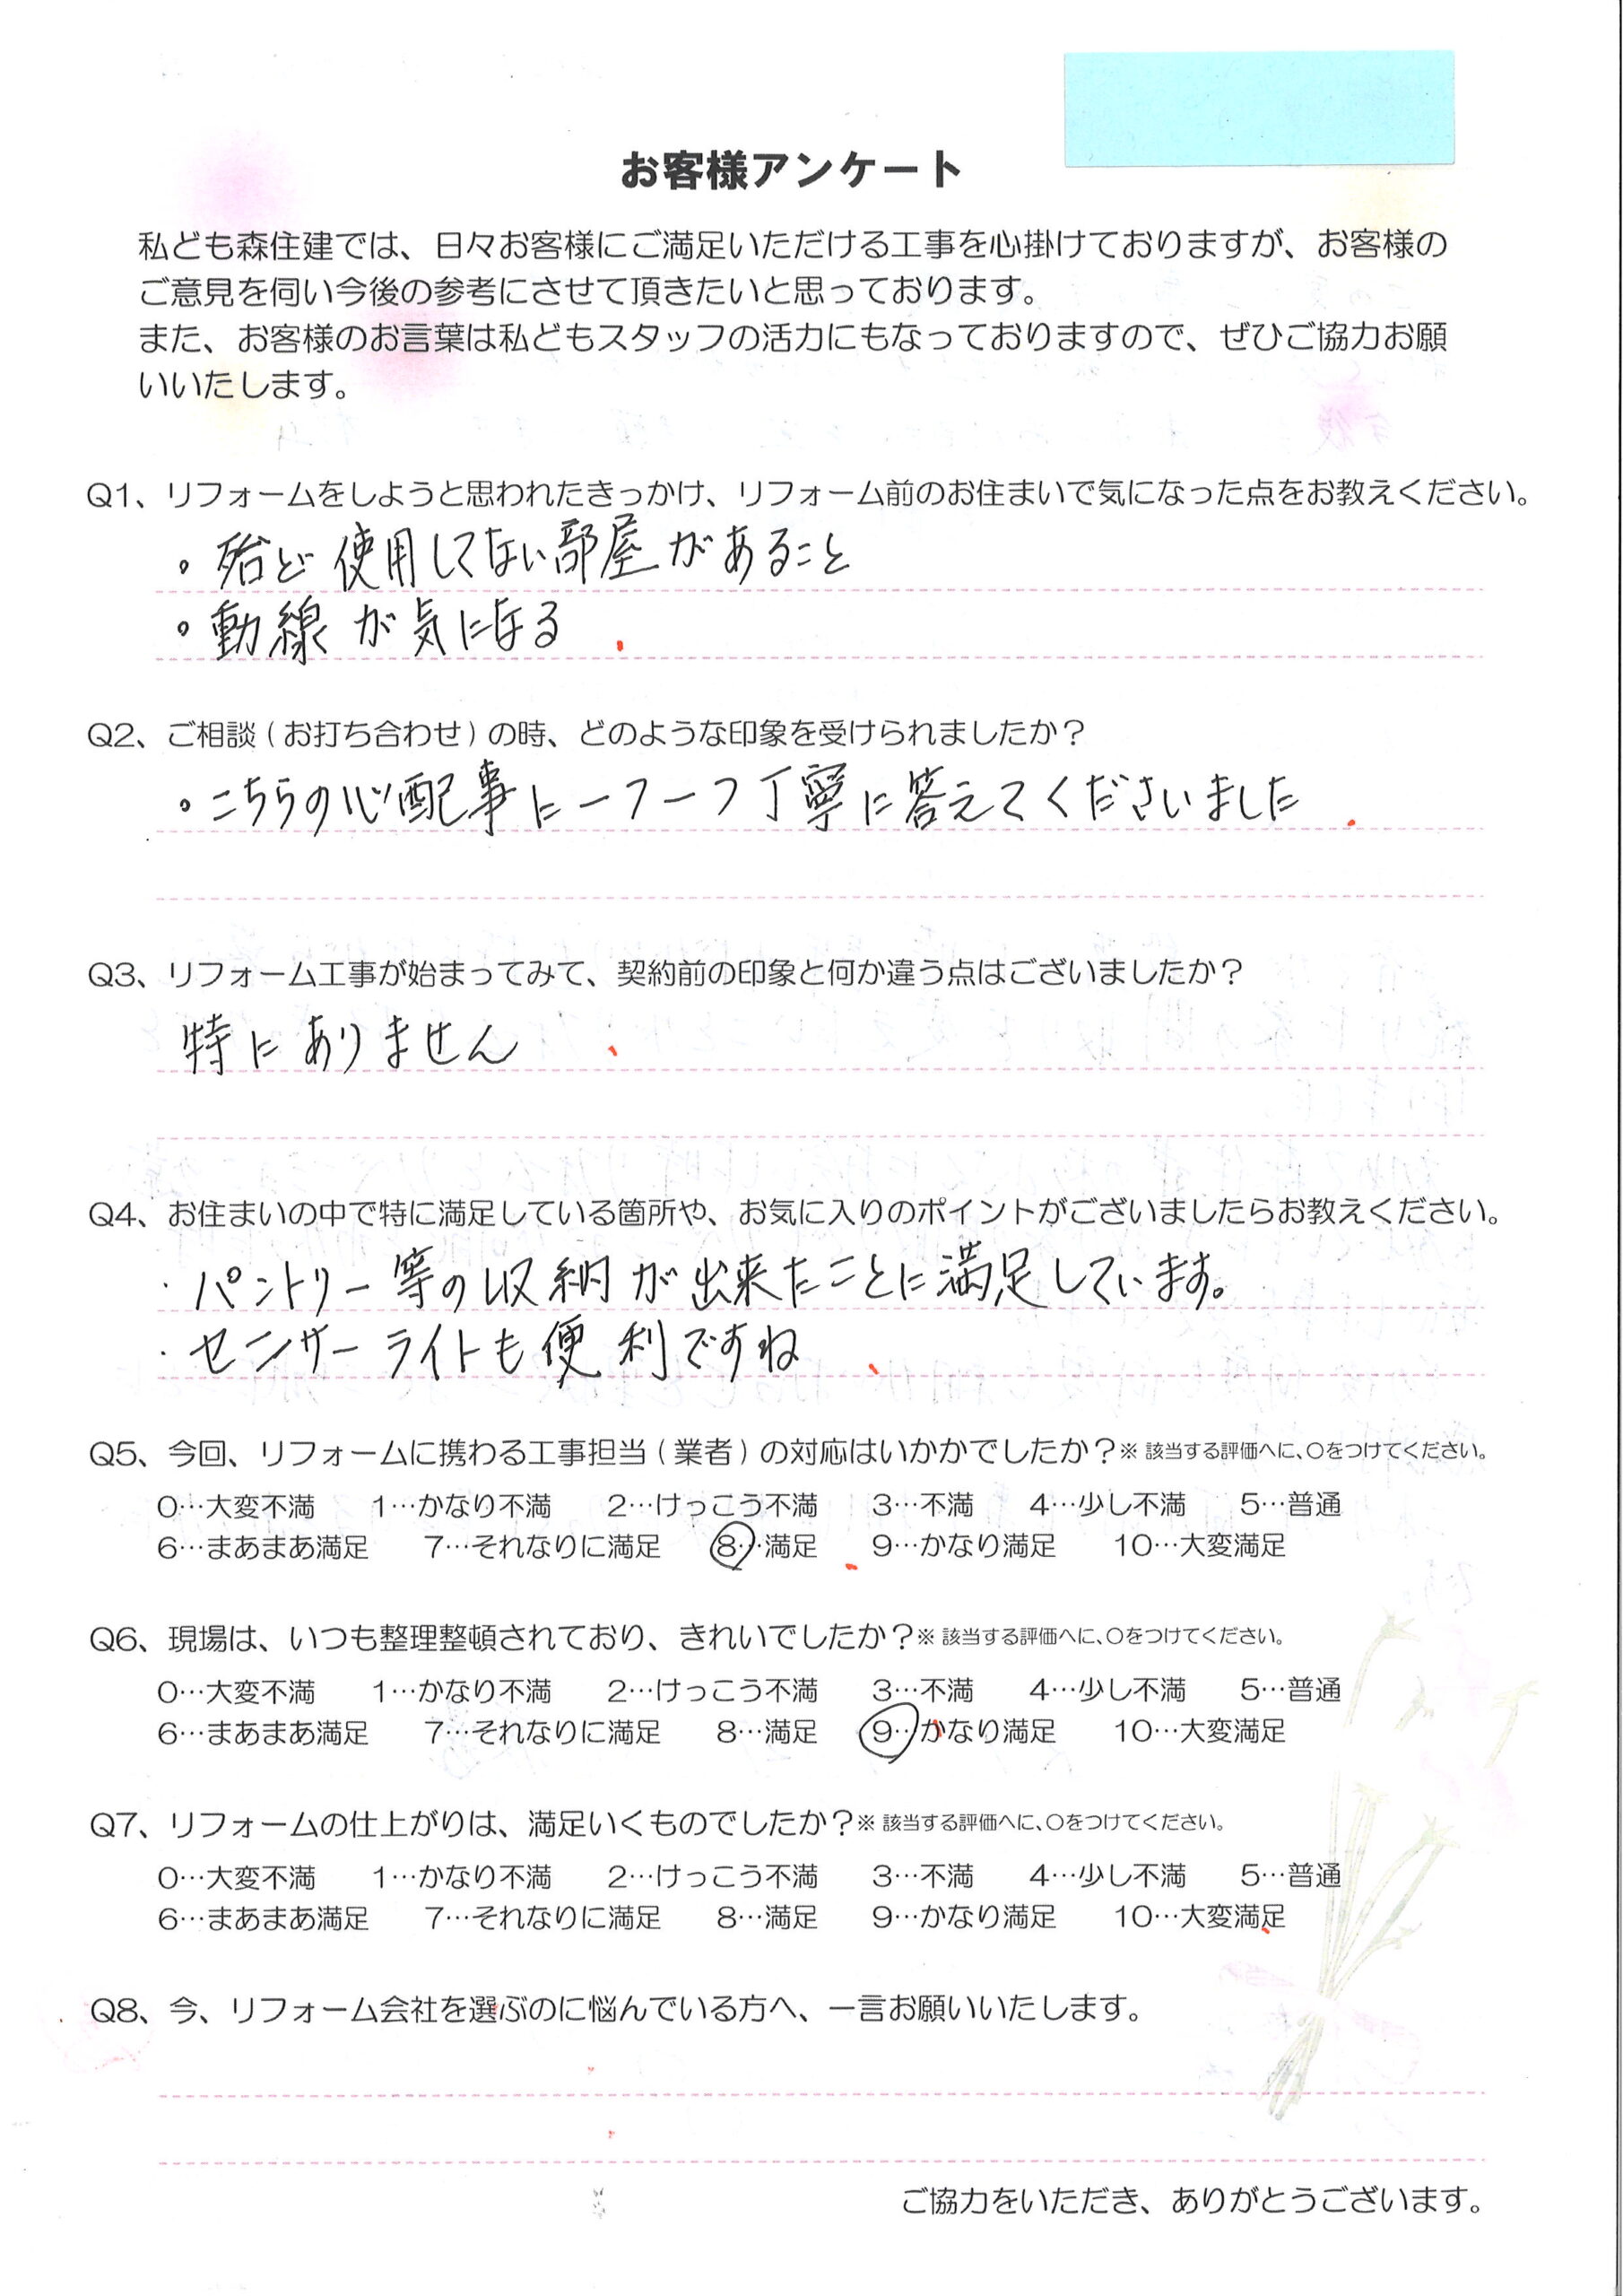 お客様アンケート
私ども森住建では、日々お客様にご満足いただける工事を心掛けておりますが、お客様の
ご意見を伺い今後の参考にさせて頂きたいと思っております。
また、お客様のお言葉は私どもスタッフの活力にもなっておりますので、ぜひご協力お願
いいたします。
Q1、リフォームをしようと思われたきっかけ、リフォーム前のお住まいで気になった点をお教えください。
。殆ど使用してない部屋があること
。動線が気になる
Q2、ご相談(お打ち合わせ)の時、どのような印象を受けられましたか?
。こちらの心配事に一つ一つ丁寧に答えてくださいました
Q3、リフォーム工事が始まってみて、契約前の印象と何か違う点はございましたか?
特にありません
Q4、お住まいの中で特に満足している箇所や、お気に入りのポイントがございましたらお教えください。
・パントリー等の収納が出来たことに満足しています。
・センサーライトも便利ですね
Q5、今回、リフォームに携わる工事担当(業者)の対応はいかかでしたか?※該当する評価へに、〇をつけてください。
0…大変不満 1…かなり不満 2…けっこう不満 3…不満 4…少し不満 5…普通
6…まあまあ満足 7…それなりに満足 8…満足 9…かなり満足 10…大変満足
Q6、現場は、いつも整理整頓されており、きれいでしたか?※該当する評価へに、〇をつけてください。
0…大変不満 1…かなり不満 2…けっこう不満 3…不満 4…少し不満 5…普通
6…まあまあ満足 7…それなりに満足 8…満足 9…かなり満足 10…大変満足
Q7、リフォームの仕上がりは、満足いくものでしたか?※該当する評価へに、〇をつけてください。
0…大変不満 1…かなり不満 2…けっこう不満 3…不満 4…少し不満 5…普通
6…まあまあ満足 7…それなりに満足 8…満足 9…かなり満足 10…大変満足
Q8、今、リフォーム会社を選ぶのに悩んでいる方へ、一言お願いいたします。
ご協力をいただき、ありがとうございます。